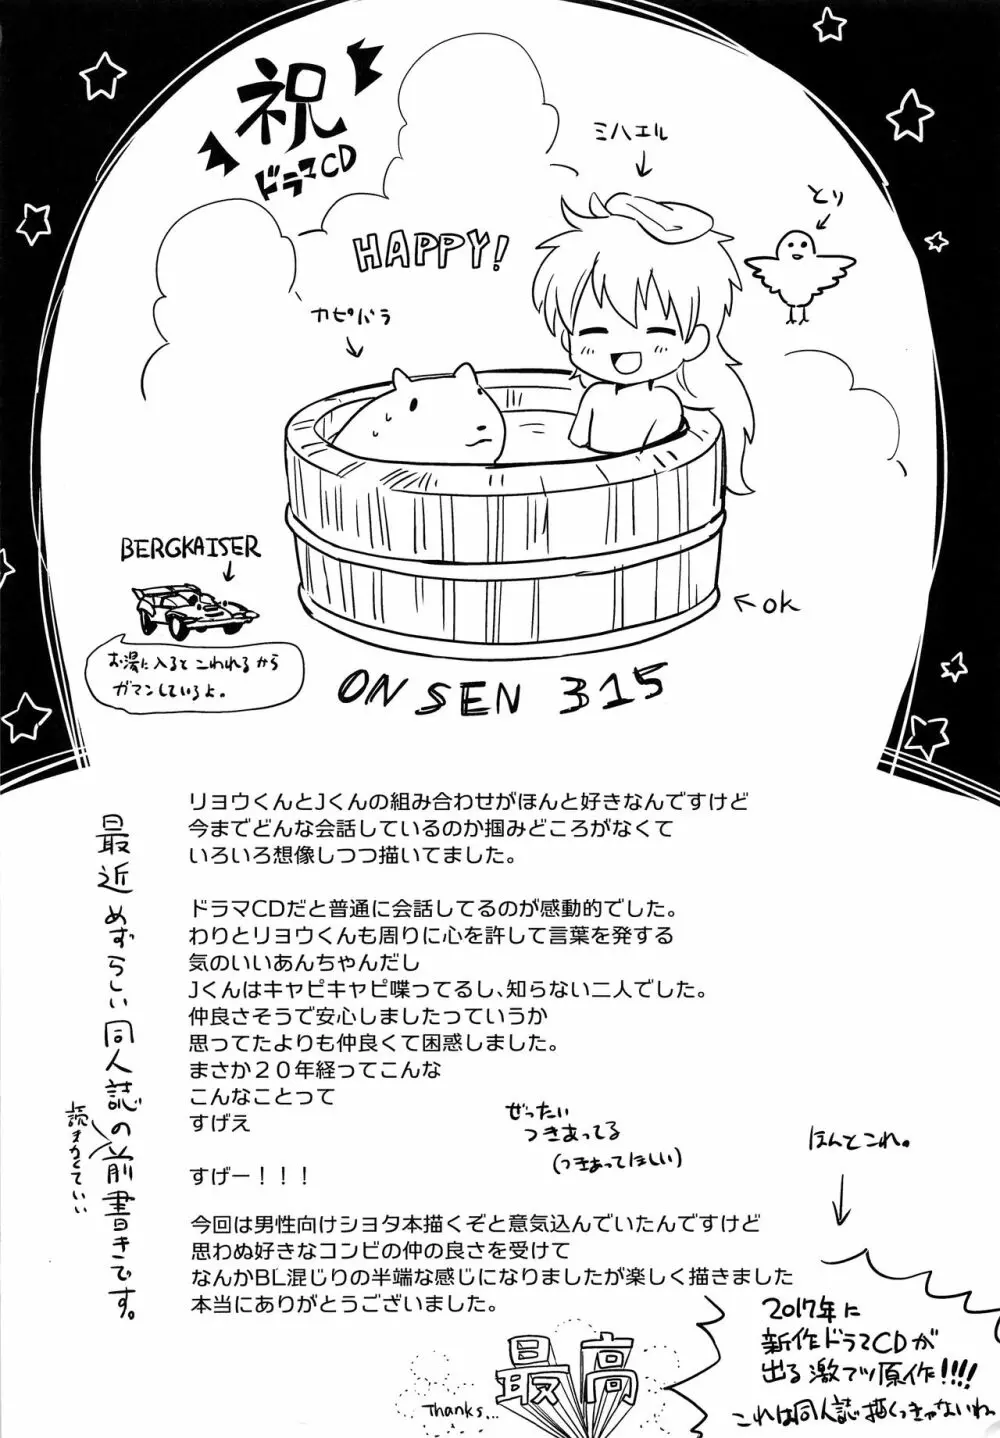 祝
ドラマCD
HAPPY!
ミハエル
とり
カピバラ
BERGKAISER
お湯に入ると こわれるから
ガマンしているよ。
OK
ONSEN 315
最近めずらしい同人誌の前書きです。
読まなくていい
リョウくんとJくんの組み合わせがほんと好きなんですけど
今までどんな会話しているのか掴みどころがなくて
いろいろ想像しつつ描いてました。
ドラマCDだと普通に会話してるのが感動的でした。
わりとリョウくんも周りに心を許して言葉を発する
気のいいあんちゃんだし
Jくんはキャピキャピ喋ってるし、知らない二人でした。
仲良さそうで安心しましたっていうか
思ってたよりも仲良くて困惑しました。
まさか20年経ってこんな
こんなことって
すげえ
ぜったい
つきあってる
(つきあってほしい)
すげー！！！
今回は男性向けショタ本描くぞと意気込んでいたんですけど
思わぬ好きなコンビの仲の良さを受けて
なんかBL混じりの半端な感じになりましたが楽しく描きました
本当にありがとうございました。
ほんとこれ。
2017年に
新作ドラマCDが
出る激アツ原作!!!!
これは同人誌描くっきゃないわ。
最高
Thanks...